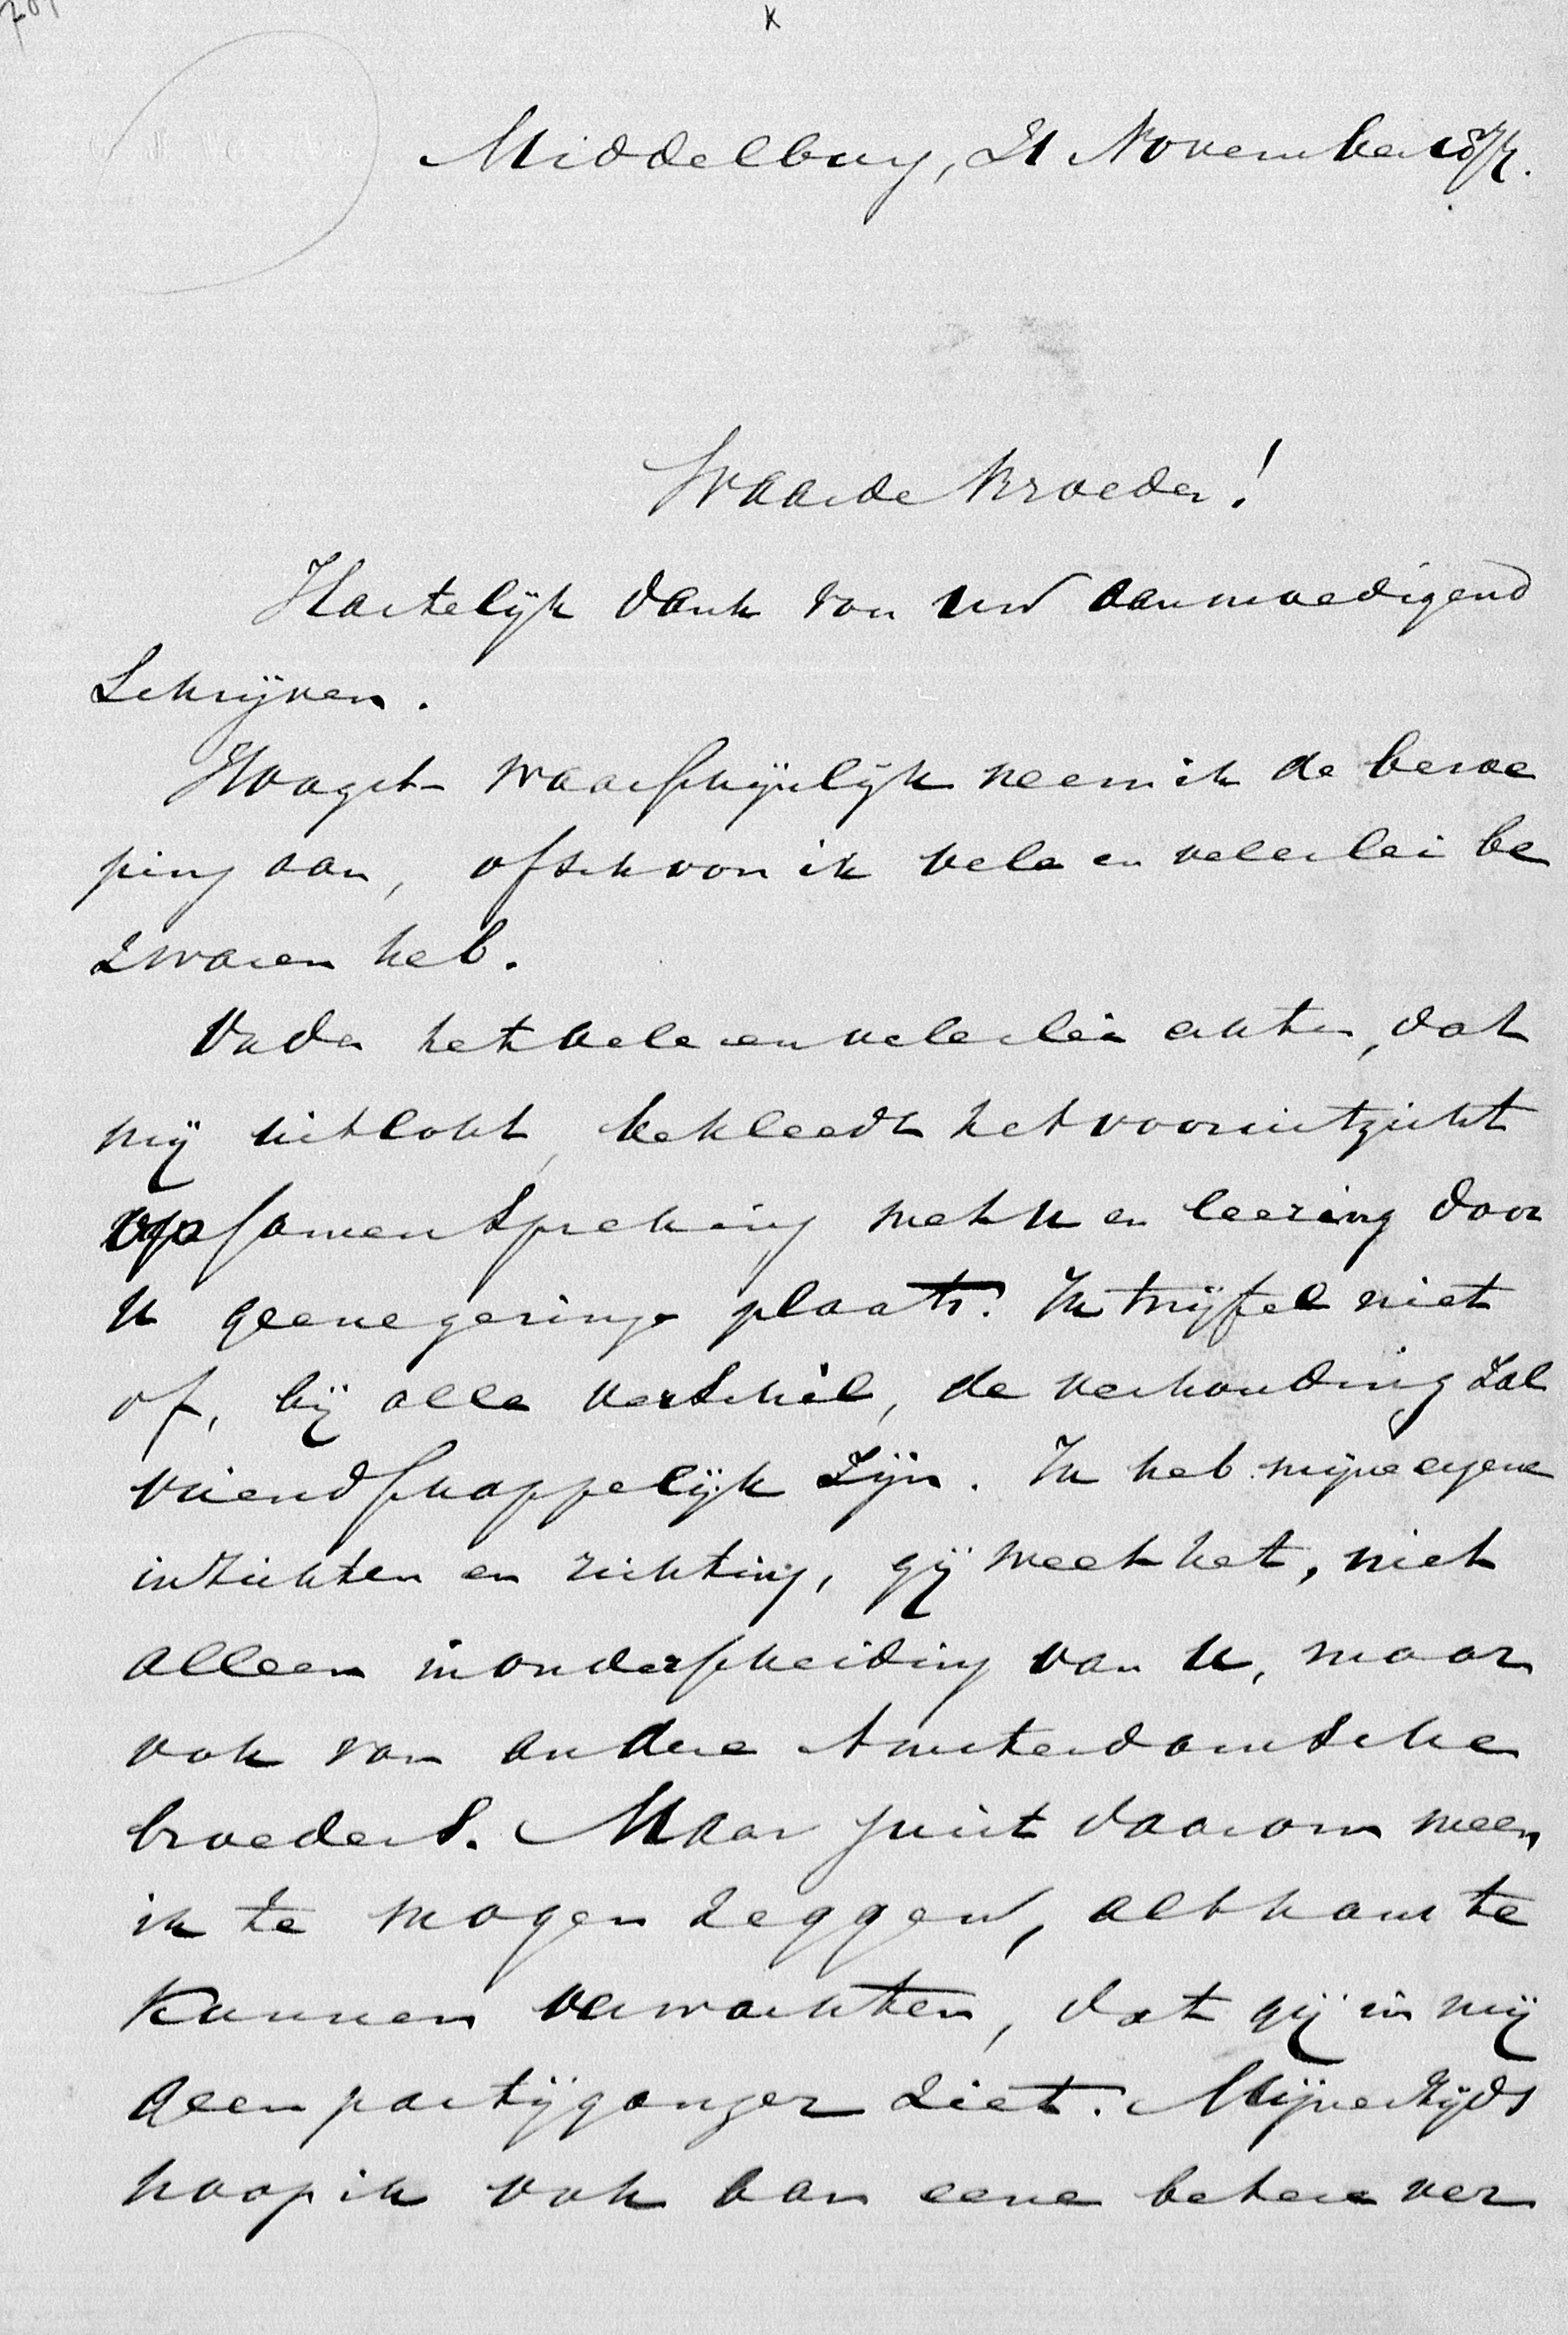 Middelburg, 21 November
Waarde Broeder!
Hartelijk dank voor uw aanmoedigend
schrijven.
Hoogst waarschijnlijk neem ik de beroe
ping aan, ofschoon ik vele en velerlei be
zwaren heb.
Onder het vele en velerlei echter, dat
mij uitlokt, bekleedt het vooruitzicht
op samenspreking met u en leering door
u geene geringe plaats. Ik twijfel niet
of, bij alle verschil, de verhouding zal
vriendschappelijk zijn. Ik heb mijne eigene
inzichten en richting, gij weet het, niet
alleen in onderscheiding van u, maar
ook van andere Amsterdamsche
broeders. Maar juist daarom meen
ik te mogen zeggen, althans te
kunnen verwachten, dat gij in mij
geen partijganger ziet. Mijnerzijds
hoop ik ook aan eene betere ver